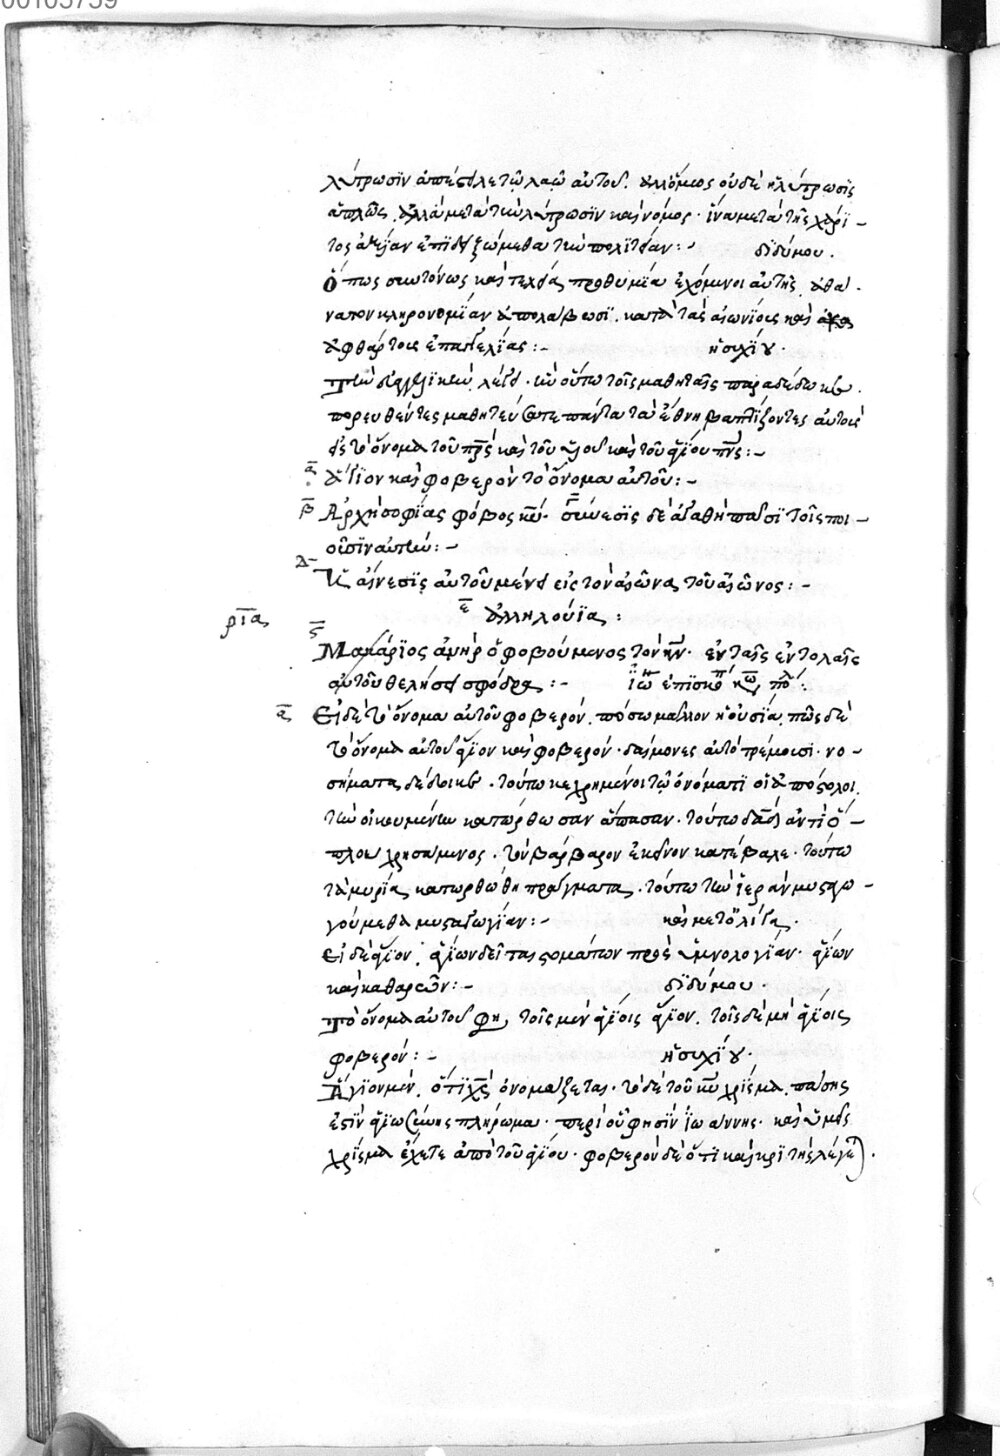 00105759
λύτρωσϊν ἀπέστειλε τῷ λαῷ αὐτοῦ. ἀλλ' ὅμως οὐδὲ ἡ λύτρωσϊς
ἁπλῶς, ἀλλὰ μετὰ τὴν λύτρωσϊν καὶ νόμος. ἵνα μετὰ τῆς χάρϊ -
τος ἀξίαν ἐπϊδειξώμεθα τὴν πολϊτείαν: - διδύμου.
Ὅπως συντόνως καὶ τελείᾳ προθυμίᾳ ἐχόμενοι αὐτῆς, ἀθά -
νατον κληρονομίαν ἀπολάβωσϊ. κατὰ τὰς αἰωνίους καὶ
ἀφθάρτους ἐπαγγελίας: - ἡσυχίου.
Τὴν εὐαγγελϊκὴν λέγει. ἣν οὕτω τοῖς μαθηταῖς παραδέδωκεν.
πορευθέντες μαθητεύσατε πάντα τὰ ἔθνη βαπτίζοντες αὐτοὺς
εἰς τὸ ὄνομα τοῦ πρς καὶ τοῦ υἱοῦ καὶ τοῦ ἁγίου πνς: -
α Ἅγιον καὶ φοβερὸν τὸ ὄνομα αὐτοῦ: -
β Ἀρχὴ σοφίας φόβος κυ. γ σύνεσϊς δὲ ἀγαθὴ πᾶσϊ τοῖς ποι -
οῦσϊν αὐτήν: -
δ Ἡ αἴνεσϊς αὐτοῦ μένει εἰς τὸν αἰῶνα τοῦ αἰῶνος: -
ρια ε ἀλληλούϊα:
ς Μακάρϊος ἀνὴρ ὁ φοβούμενος τὸν κν. ἐν ταῖς ἐντολαῖς
αὐτοῦ θελήσει σφόδρα: - ἰω ἐπϊσκό κω πό:
α Εἰ δὲ τὸ ὄνομα αὐτοῦ φοβερόν, πόσῳ μᾶλλον ἡ οὐσία, πῶς δὲ
τὸ ὄνομα αὐτοῦ ἅγϊον καὶ φοβερόν. δαίμονες αὐτὸ τρέμουσϊ. νο -
σήματα δέδοικεν. τούτῳ κεχρημένοι τῷ ὀνόματϊ οἱ ἀπόστολοι,
τὴν οἰκουμένην κατώρθωσαν ἅπασαν. τούτῳ δαδ ἀντὶ ὅ -
πλου χρησάμενος. τὸν βάρβαρον ἐκεῖνον κατέβαλε. τούτῳ
τὰ μυρία κατωρθώθη πράγματα. τούτῳ τὴν ἱερὰν μυσταγω -
γούμεθα μυσταγωγίαν: - καὶ μετ' ὀλίγα.
Εἰ δὲ ἅγιον, ἁγίων δεῖται στομάτων πρὸς ὑμνολογίαν. ἁγίων
καὶ καθαρῶν: - διδύμου.
Τὸ ὄνομα αὐτοῦ φη, τοῖς μὲν ἁγίοις ἅγϊον. τοῖς δὲ μὴ ἁγϊοις
φοβερόν: - ἡσυχίου.
Ἅγϊον μὲν, ὅτϊ χς ὀνομάζεται. τὸ δὲ τοῦ κυ χρίσμα, πάσης
ἐστϊν ἁγϊωσύνης πλήρωμα. περὶ οὗ φησϊν ἰωάννης. καὶ ὑμεῖς
χρίσμα ἔχετε ἀπὸ τοῦ ἁγίου. φοβερὸν δὲ ὅτϊ καὶ κρϊτὴς λέγε).